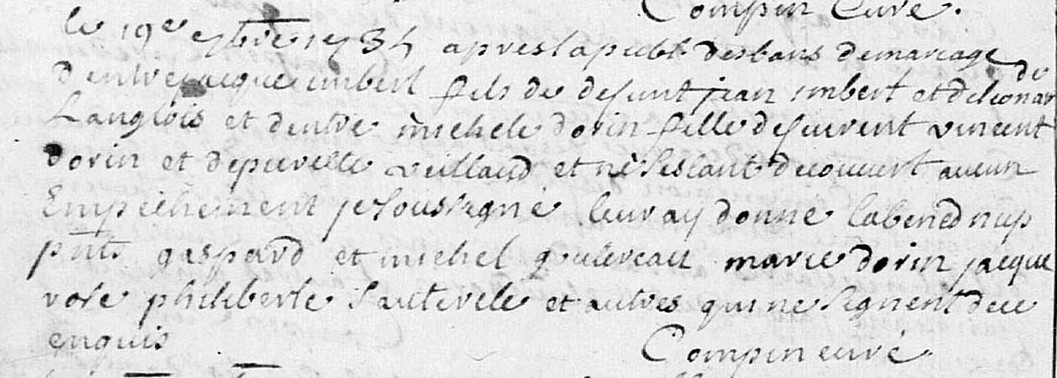 Compin Curé.
le 19e 9bre 1734 apres la publ desbans demariage de
dentre jacque imbert fils de defunt jean imbert et deleonar
Langlois et dentre michele dorin fille defunt vincent
dorin et depierette veilland et ne sestant decouvert aucun
Empéchement je soussigné leur ay donné labened nup
pnts gaspard et michel marie dorin jacque
philiberte et autres qui ne signent dece
enquis
Compin curé